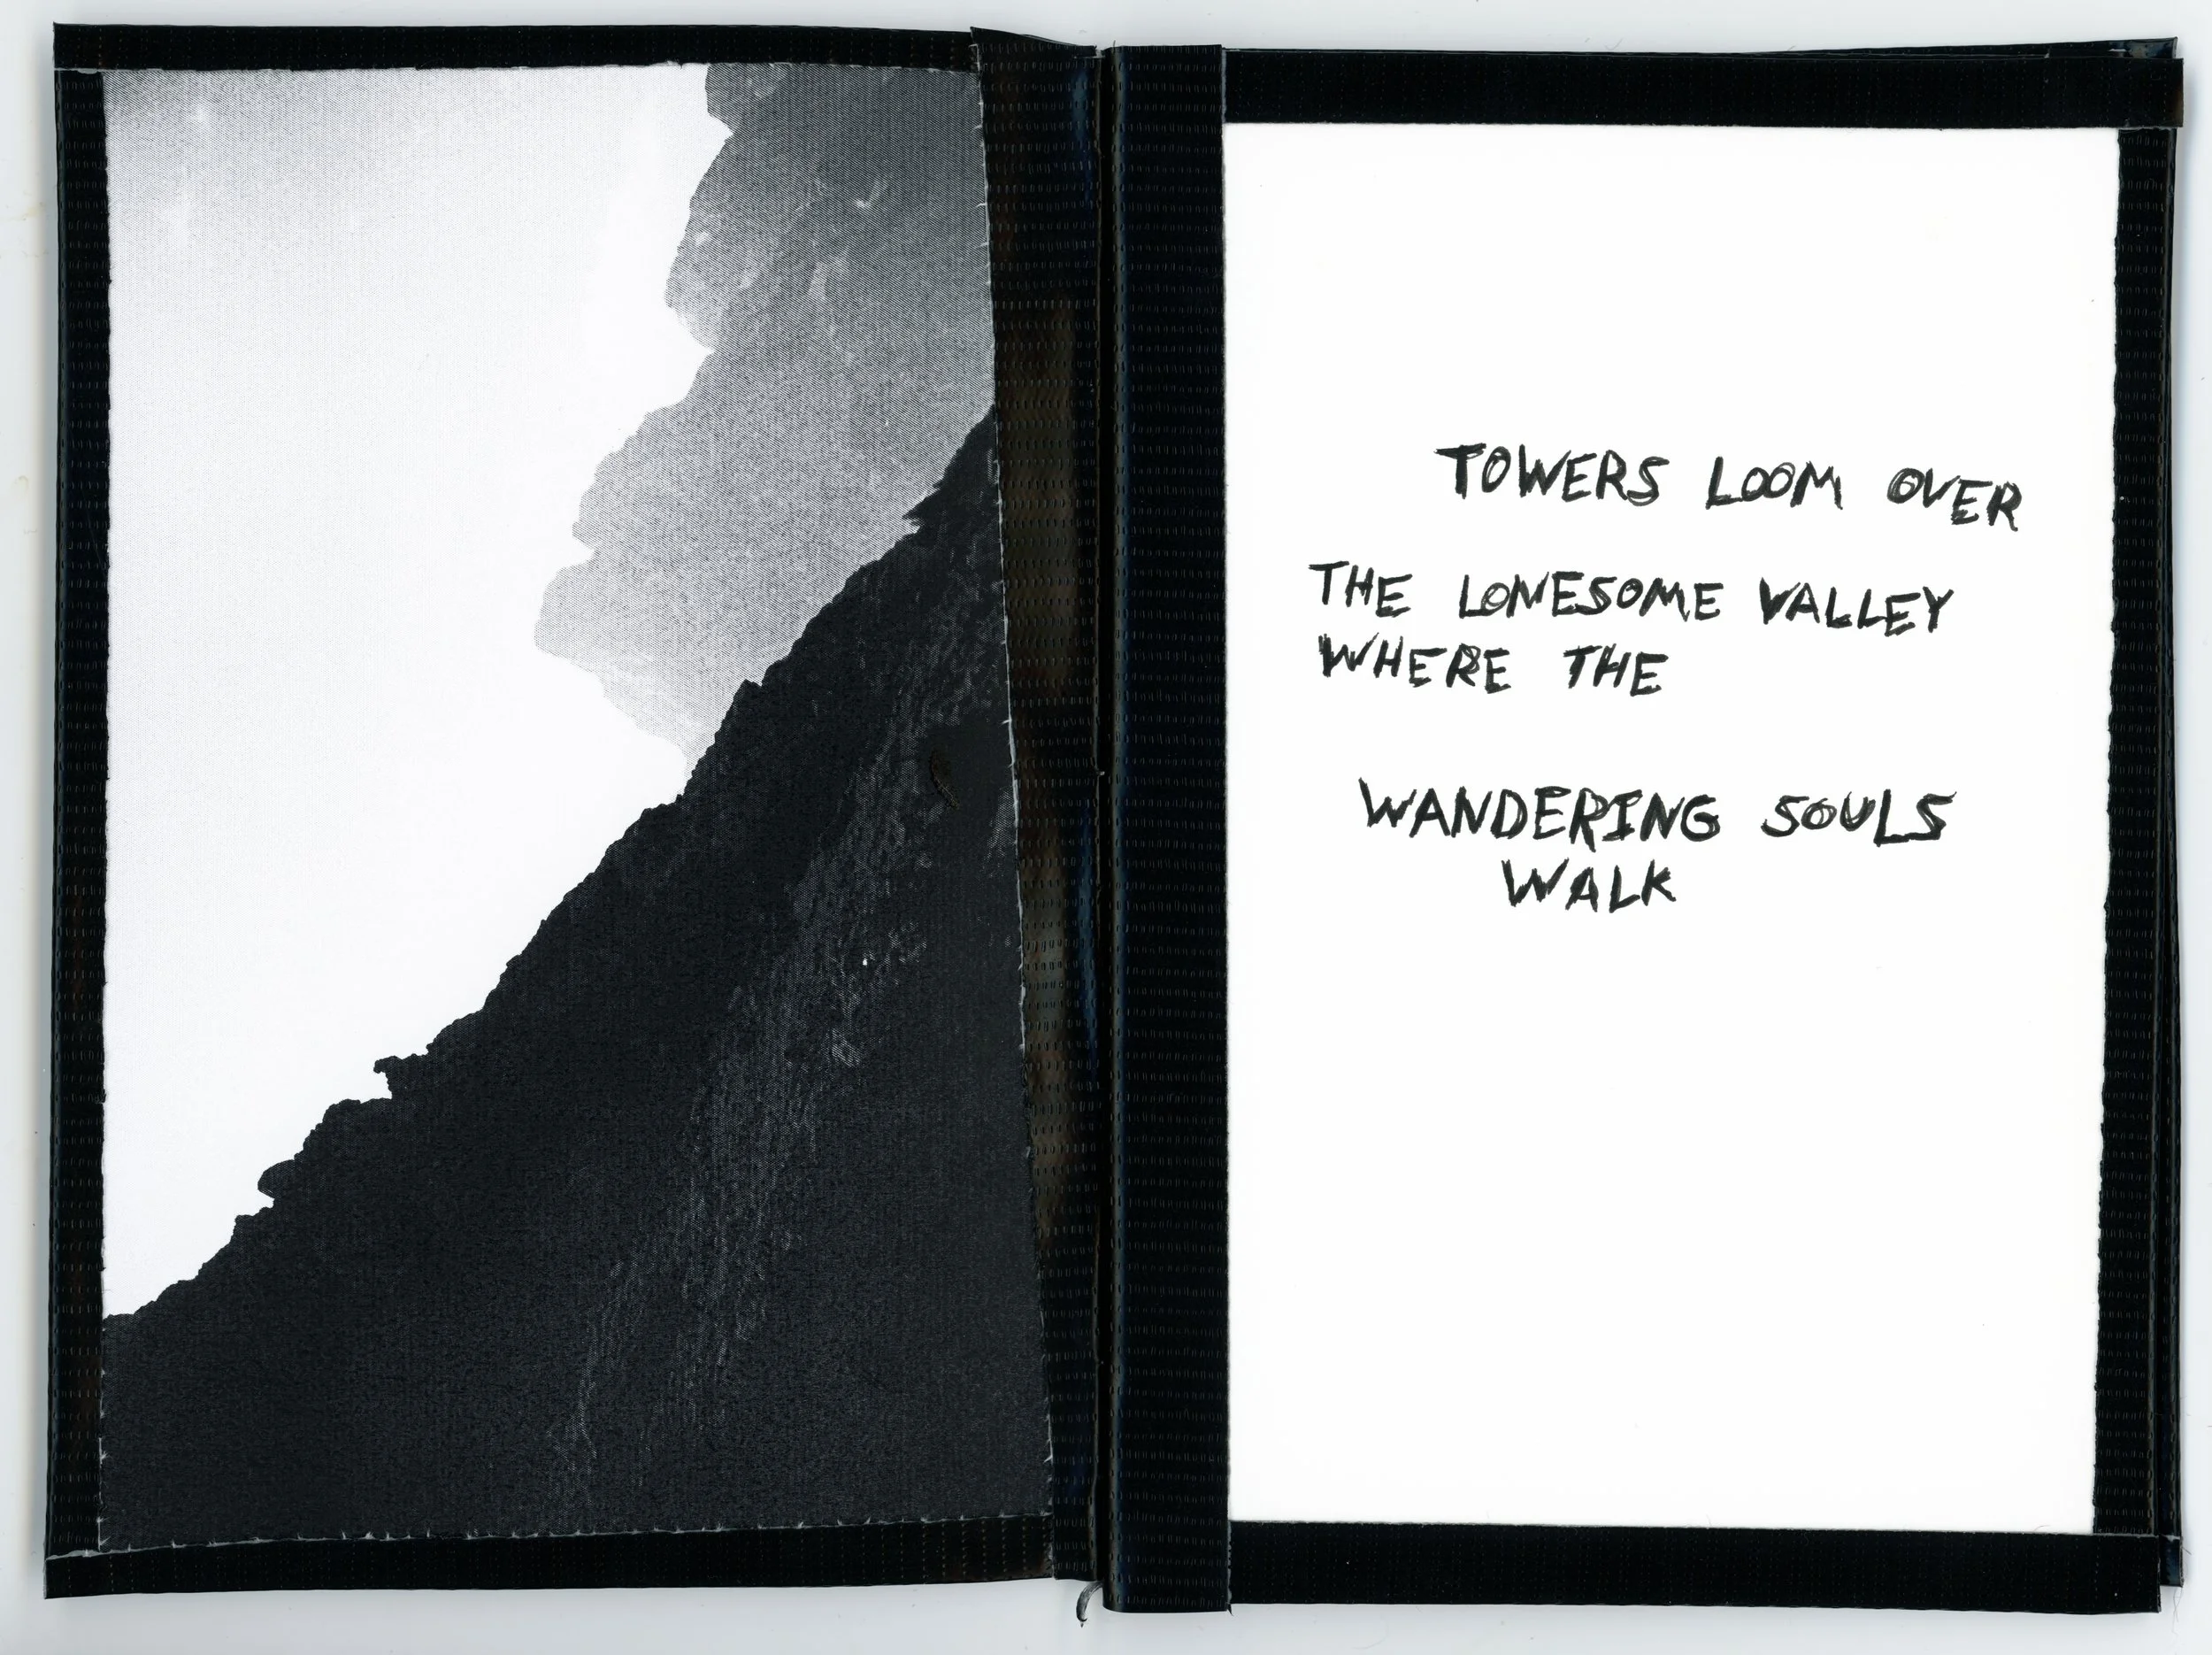 TOWERS LOOM OVER
THE LONESOME VALLEY
WHERE THE
WANDERING SOULS
WALK